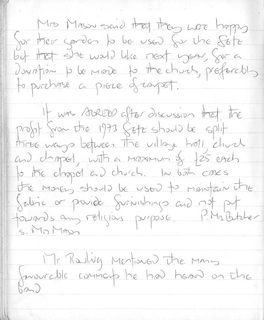 Mrs Mason said that they were happy
for their garden to be used for the fete
but that she would like next year, for a
donation to be made to the church, preferably
to purchase a piece of carpet.
It was AGREED after discussion that the
profit from the 1973 fete should be split
three ways between the village hall, church
and chapel, with a maximum of £25 each
to the chapel and church. In both cases
the money should be used to maintain the
fabric or provide furnishings and not put
towards any religious purpose. P. Mr Butcher
s. Mrs Mason
Mr Radley mentioned the many
favourable comments he had heard on the
band